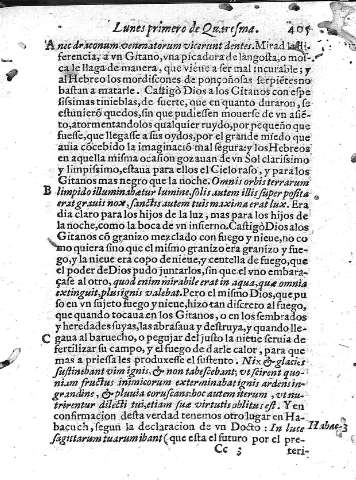 Lunes primero de Quaresma. 405
A nec draconum venenatorum vicerunt dentes. Mirad la di-
ferencia, a vn Gitano, vna picadura de langosta, o mos-
ca le llaga de manera, que viene a ser mal incurable; y
al Hebreo los mordiscones de ponçoñosas serpiētes no
bastan a matarle. Castigò Dios a los Gitanos con espe
sissimas tinieblas, de suerte, que en quanto duraron, se
estuuierō quedos, sin que pudiessen mouerse de vn assiē-
to, atormentandolos qualquier ruydo, por pequeño que
fuesse, que llegasse a sus oydos, por el grande miedo que
auia cōcebido la imaginaciō mal segura: y los Hebreos
en aquella misma ocasion gozauan de vn Sol clarissimo
y limpissimo, estaua para ellos el Cielo raso, y para los
Gitanos mas negro que la noche. Omnis orbis terrarum
B limpido illuminabatur lumine. solis autem illis superposita
erat grauis nox, sanctis autem tuis maxima erat lux. Era
dia claro para los hijos de la luz, mas para los hijos de
la noche, como la boca de vn infierno. Castigò Dios a los
Gitanos cō granizo mezclado con fuego y nieue, no co
mo quiera sino que el mismo granizo era granizo y fue-
go, y la nieue era copo de nieue, y centella de fuego, que
el poder de Dios pudo juntarlos, sin que el vno embara-
çasse al otro, quod enim mirabile erat in aqua, quæ omnia
extinguit, plus ignis valebat. Pero el mismo Dios, que pu
so en vn sujeto fuego y nieue, hizo tan discreto al fuego,
que quando tocaua en los Gitanos, o en los sembrados
y heredades suyas, las abrasaua y destruya, y quando lle-
gaua al baruecho, o pegujar del justo la nieue seruia de
C fertilizar su campo, y el fuego de darle calor, para que
mas a priessa les produxesse el sustento. Nix & glacies
sustinebant vim ignis, & non tabescebant: vt scirent quo-
niam fructus inimicorum exterminabat ignis ardens in
grandine, & pluuia coruscans: hoc autem iterum, vt nu-
trirentur iusti, etiam suæ virtutis oblitus est. Y en
confirmacion desta verdad tenemos otro lugar en Ha-
bacuch, segun la declaracion de vn Docto: In luce
Habac. 3
sagittarum tuarum ibunt (que esta el futuro por el pre-
Cc 3 teri-